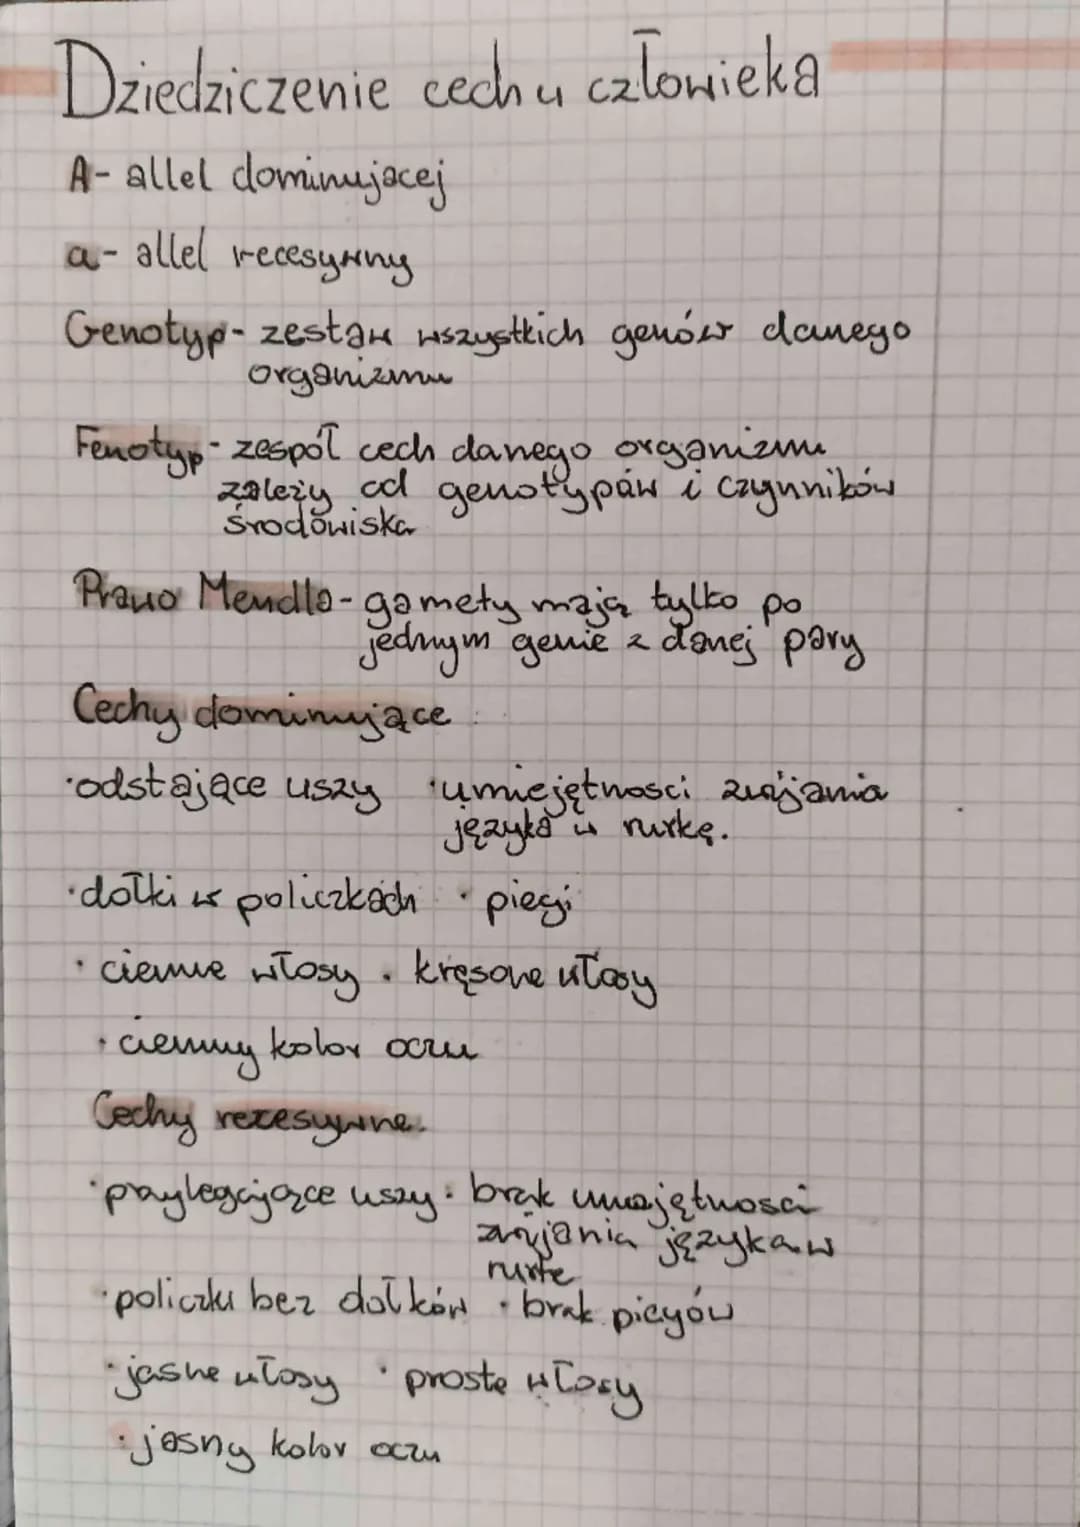 Dziedziczenie cech u człowieka
A- allel dominującej
a- allel recesywny
Genotyp- zestaw wszystkich genów danego
organizmu
Fenotyp- zespół cech danego organizmu
zależy od genotypów i czynników
środowiska
Prawo Mendla- gamety mają tylko po
jednym genie z danej pary
Cechy dominujące :
·odstające uszy ·umiejętnosci zwijania
języka w rurkę.
·dołki w policzkach · piegi
· ciemne włosy · kręcone włosy
· ciemny kolor oczu
Cechy recesywne.
·przylegające uszy · brak umiejętnosci
zwijania języka w
rurkę
·policzki bez dołków · brak piegów
·jasne włosy · proste włosy
·jasny kolor oczu